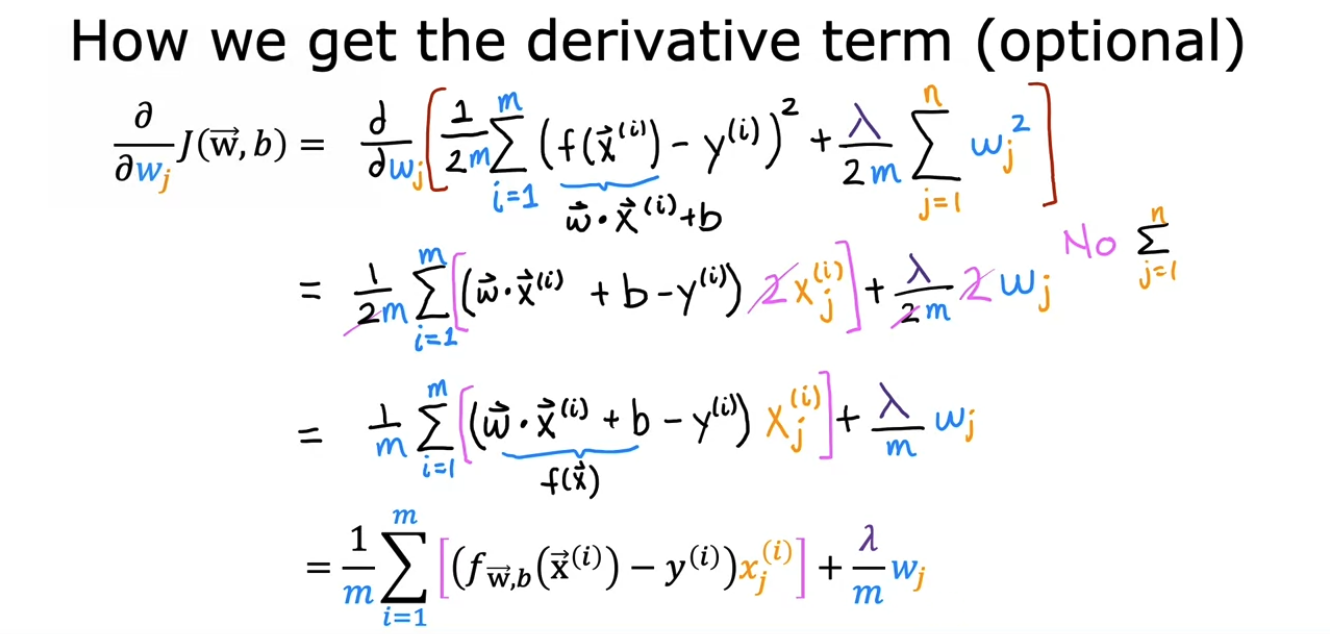 How we get the derivative term (optional)
∂/∂w_j J(w⃗, b) = d/dw_j [ 1/2m Σ_{i=1}^{m} (f(x⃗^(i)) - y^(i))^2 + λ/2m Σ_{j=1}^{n} w_j^2 ]
w⃗·x⃗^(i)+b
No Σ_{j=1}^{n}
= 1/2m Σ_{i=1}^{m} [(w⃗·x⃗^(i) + b - y^(i)) 2 x_j^(i)] + λ/2m 2 w_j
= 1/m Σ_{i=1}^{m} [(w⃗·x⃗^(i) + b - y^(i)) x_j^(i)] + λ/m w_j
f(x⃗)
= 1/m Σ_{i=1}^{m} [(f_{w⃗,b}(x⃗^(i)) − y^(i)) x_j^(i)] + λ/m w_j